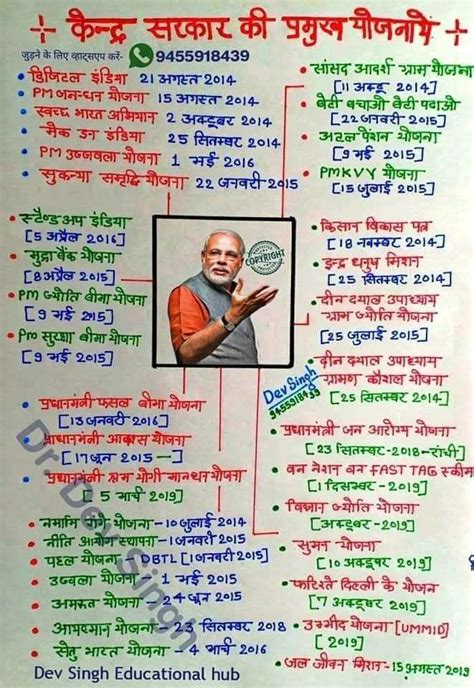 केन्द्र सरकार की प्रमुख योजनाये
जुड़ने के लिए व्हाट्सएप करें- 9455918439
डिजिटल इंडिया 21 अगस्त 2014
PM जन-धन योजना 15 अगस्त 2014
स्वच्छ भारत अभियान 2 अक्टूबर 2014
मैक इन इंडिया 25 सितम्बर 2014
PM उज्जवला योजना 1 मई 2016
सुकन्या समृद्धि योजना 22 जनवरी 2015
सांसद आदर्श ग्राम योजना
[11 अक्टू 2014]
बेटी बचाओ बेटी पढाओ
[22 जनवरी 2015]
अटल पेंशन योजना
[9 मई 2015]
PMKVY योजना
[15 जुलाई 2015]
स्टैण्ड अप इंडिया
[5 अप्रैल 2016]
मुद्रा बैंक योजना
[8 अप्रैल 2015]
PM ज्योति बीमा योजना
[9 मई 2015]
PM सुरक्षा बीमा योजना
[9 मई 2015]
COPYRIGHT
किसान विकास पत्र
[18 नवम्बर 2014]
इन्द्र धनुष मिशन
[25 सितम्बर 2014]
दीन दयाल उपाध्याय
ग्राम ज्योति योजना
[25 जुलाई 2015]
दीन दयाल उपाध्याय
ग्रामण कौशल योजना
[25 सितम्बर 2014]
Dev Singh
9455918439
प्रधानमंत्री फसल बीमा योजना
[13 जनवरी 2016]
प्राधानमंत्री आवास योजना
[17 जून 2015 —]
प्रधानमंत्री श्रम योगी मानधन योजना
5 मार्च 2019]
नमामि गंगे योजना - 10 जुलाई 2014
नीति आयोग स्थापना - 1 जनवरी 2015
पहल योजना - DBTL [1 जनवरी 2015]
उज्वला योजना - 1 मई 2015
अमृत योजना - 24 जून 2015
आयुष्मान योजना - 23 सितम्बर 2018
सेतु भारत योजना - 4 मार्च 2016
प्रधानमंत्री जन आरोग्य योजना
[23 सितम्बर-2018-रांची]
वन नेशन वन FAST TAG स्कीम
[1 दिसम्बर - 2019]
विज्ञान ज्योति योजना
[अक्टूबर - 2019]
सुमन योजना
[10 अक्टूबर 2019]
फरिश्ते दिल्ली के योजन
[7 अक्टूबर 2019]
उम्मीद योजना [UMMID]
[2019]
जल जीवन मिशन - 15 अगस्त 2019
Dr. Dev Singh
Dev Singh Educational hub